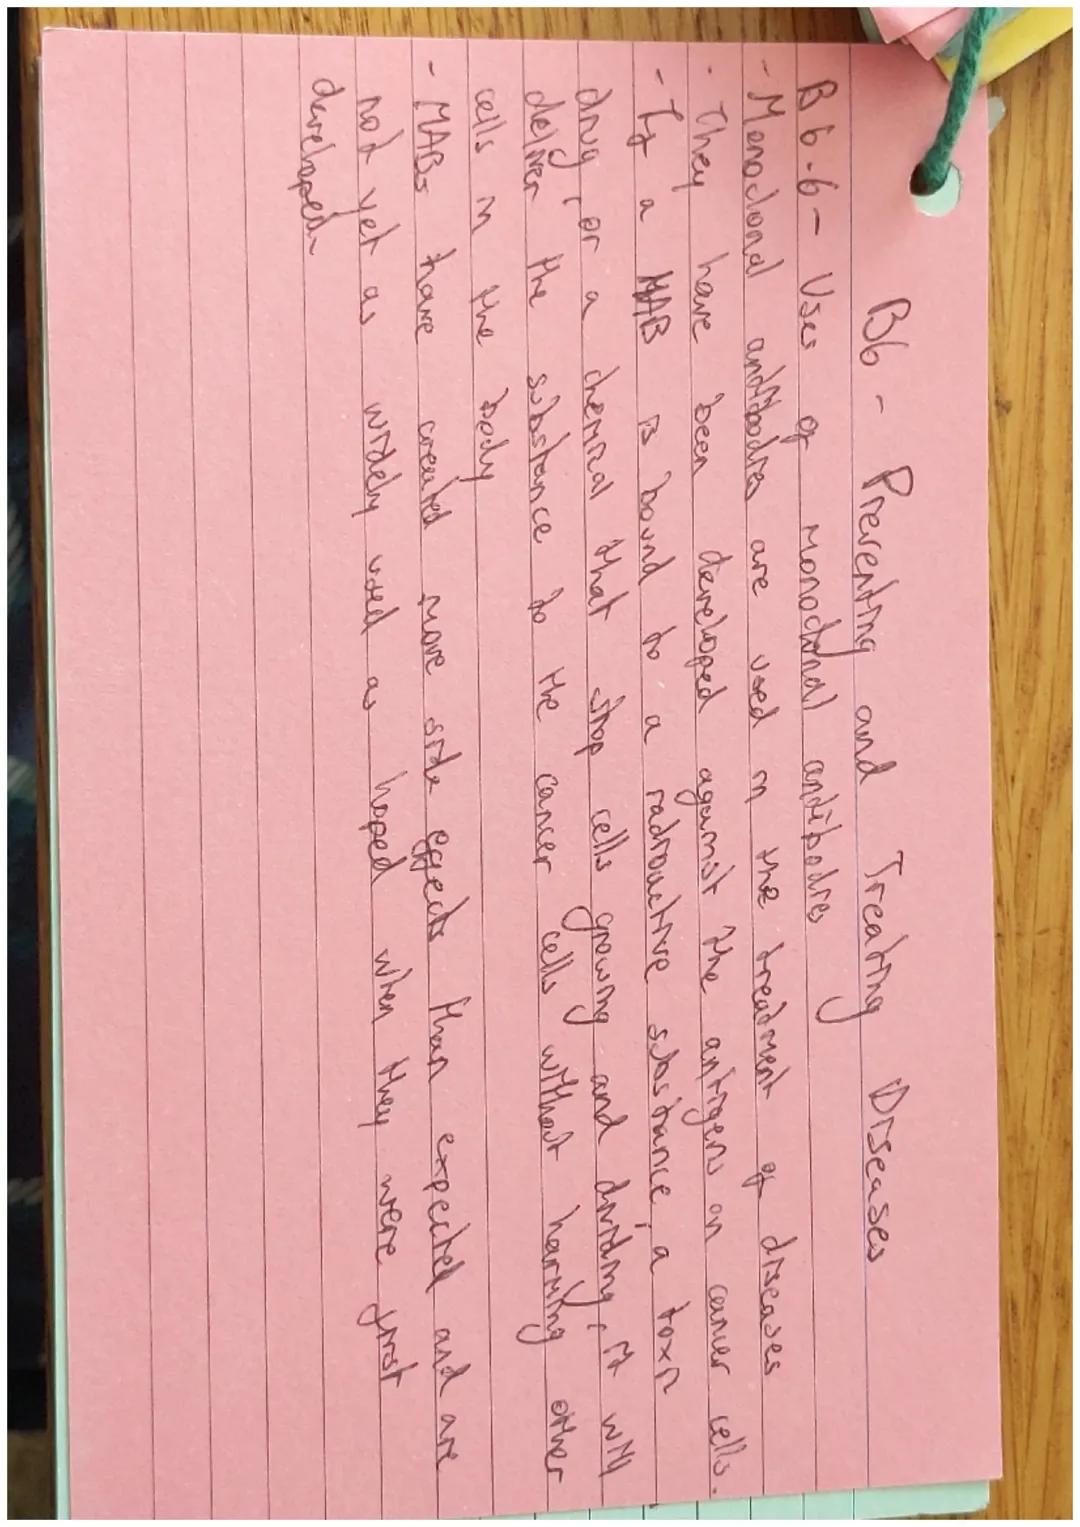 B6 - Preventing and Treating Diseases
B6.6 - Uses of monoclonal antibodies
- Monoclonal antibodies are used in the treatment of diseases
- They have been developed against the antigens on cancer cells.
- If a MAB is bound to a radioactive substance, a toxin
drug, or a chemical that stop cells growing and dividing, it will
deliver the substance to the cancer cells without harming other
cells in the body
- MABs have created more side effects than expected and are
not yet as widely used as hoped when they were first
developed